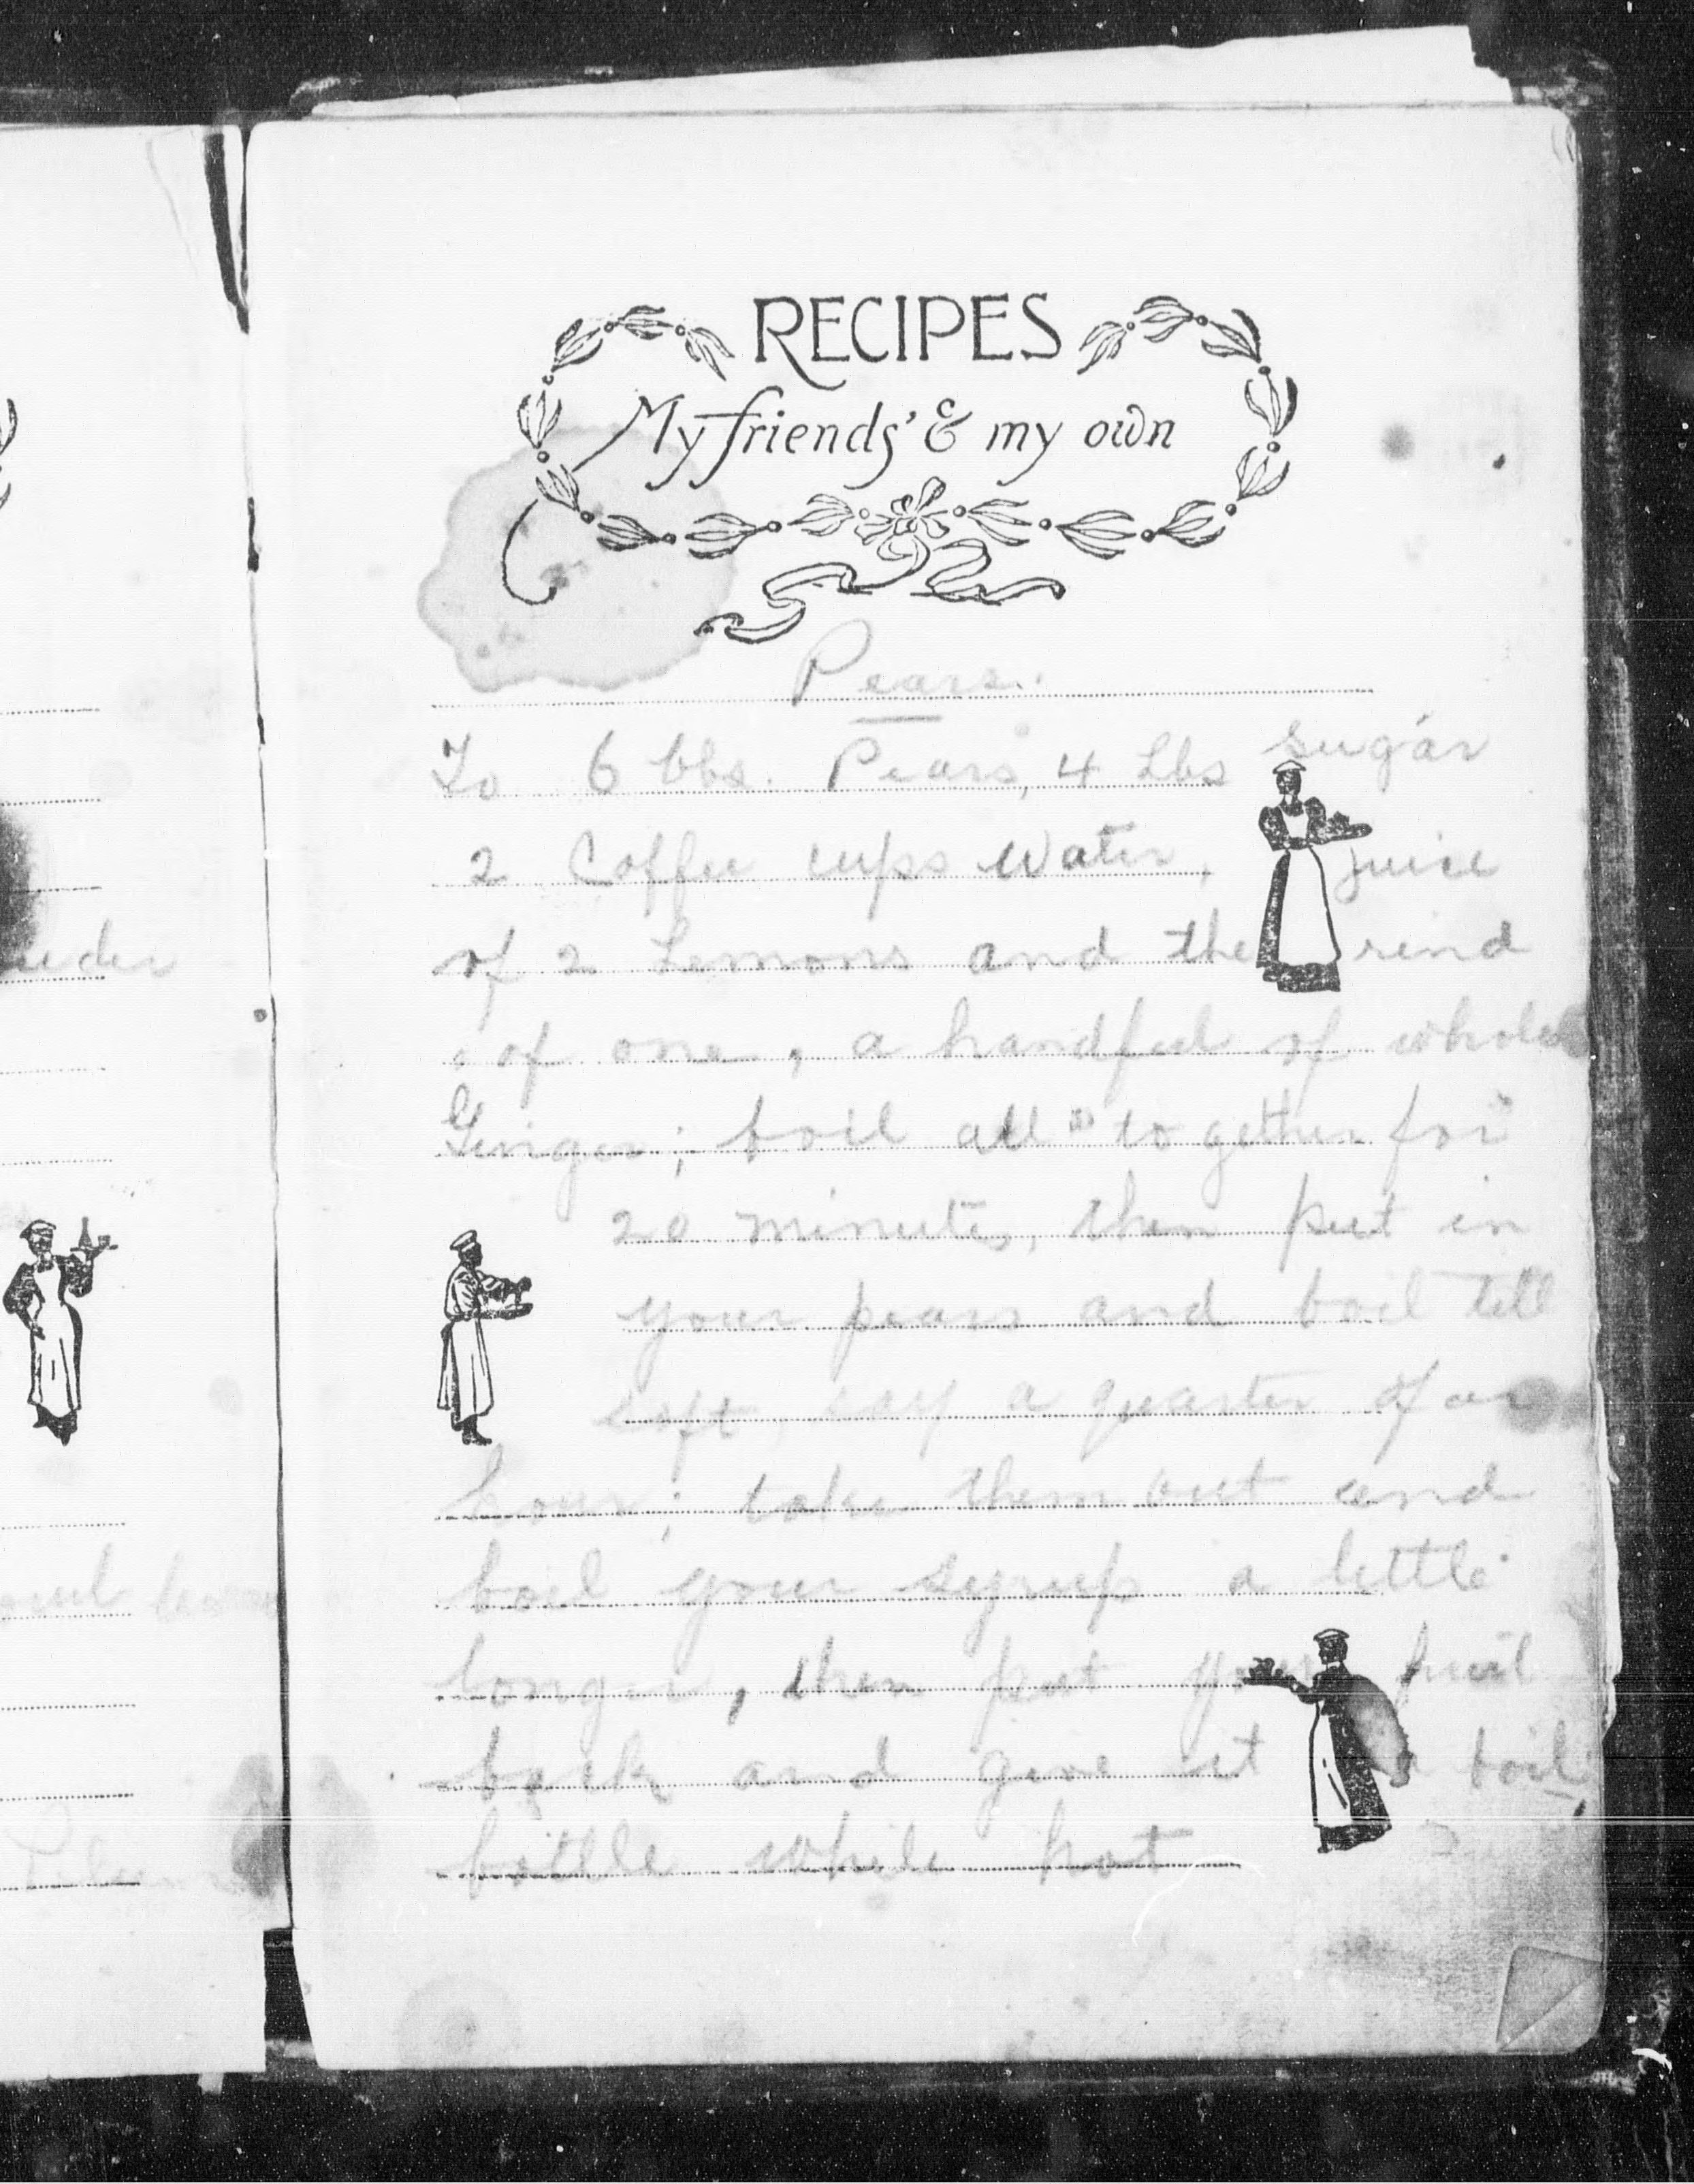 RECIPES
My friends' & my own
Pears.
To 6 lbs. Pears, 4 Lbs sugar
2 Coffee cups Water, juice
of 2 Lemons and the rind
of one, a handful of whole
Ginger; boil all together for
20 minutes, then put in
your pears and boil till
soft, say a quarter of an
hour; take them out and
boil your syrup a little
longer, then put your fruit
back and give it a boil,
bottle while hot